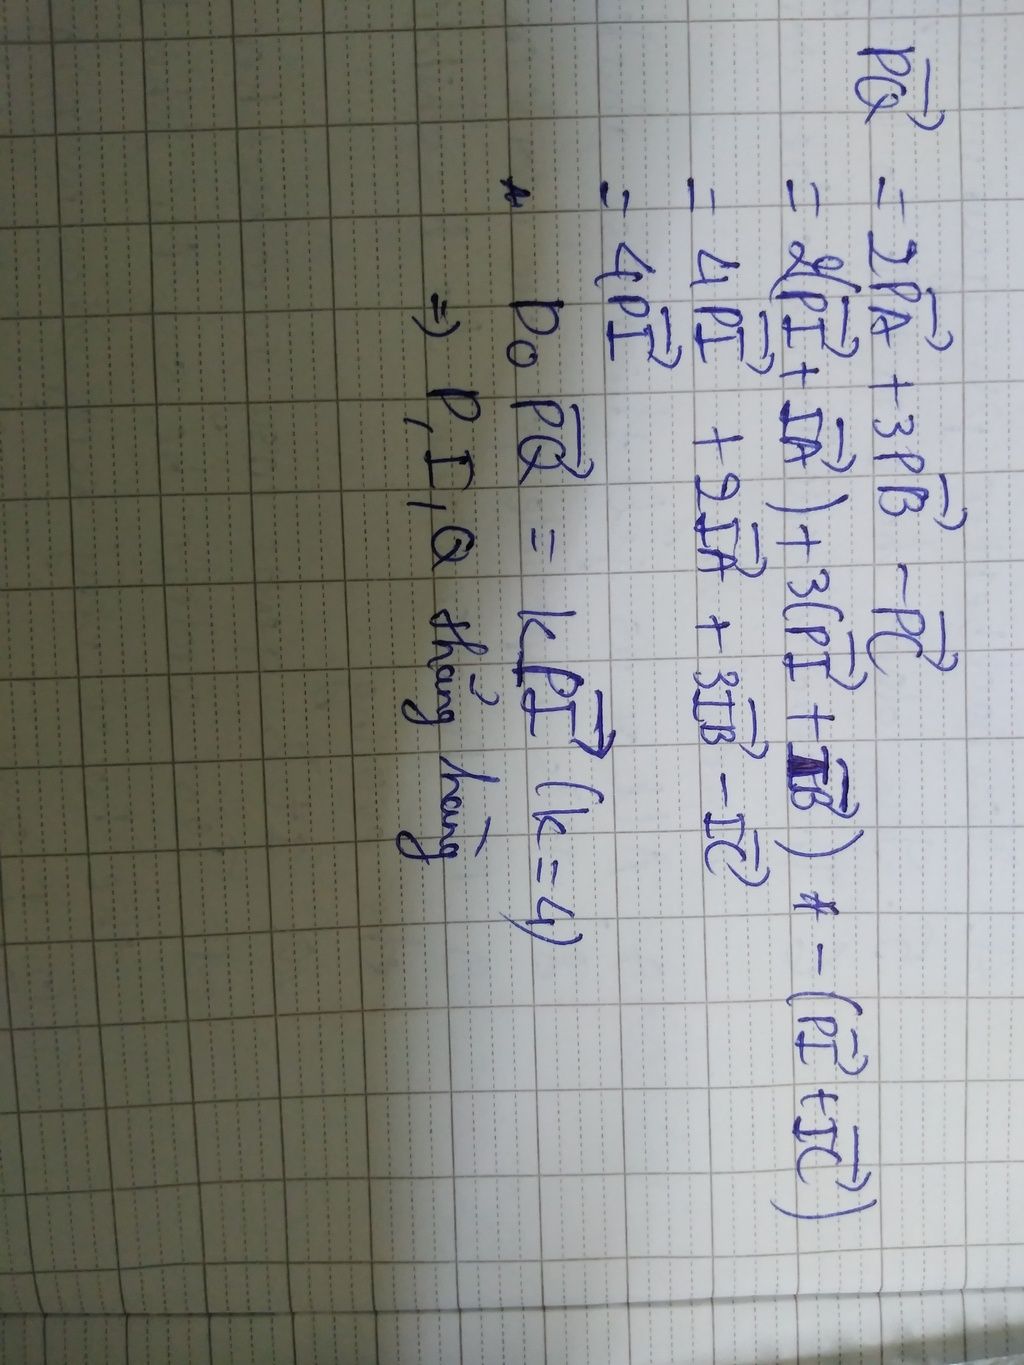 PQ⃗ = 2PA⃗ + 3PB⃗ - PC⃗
= 2(PI⃗ + IA⃗) + 3(PI⃗ + IB⃗) - (PI⃗ + IC⃗)
= 4PI⃗ + 2IA⃗ + 3IB⃗ - IC⃗
= 4PI⃗
Do PQ⃗ = kPI⃗ (k=4)
=> P, I, Q thẳng hàng